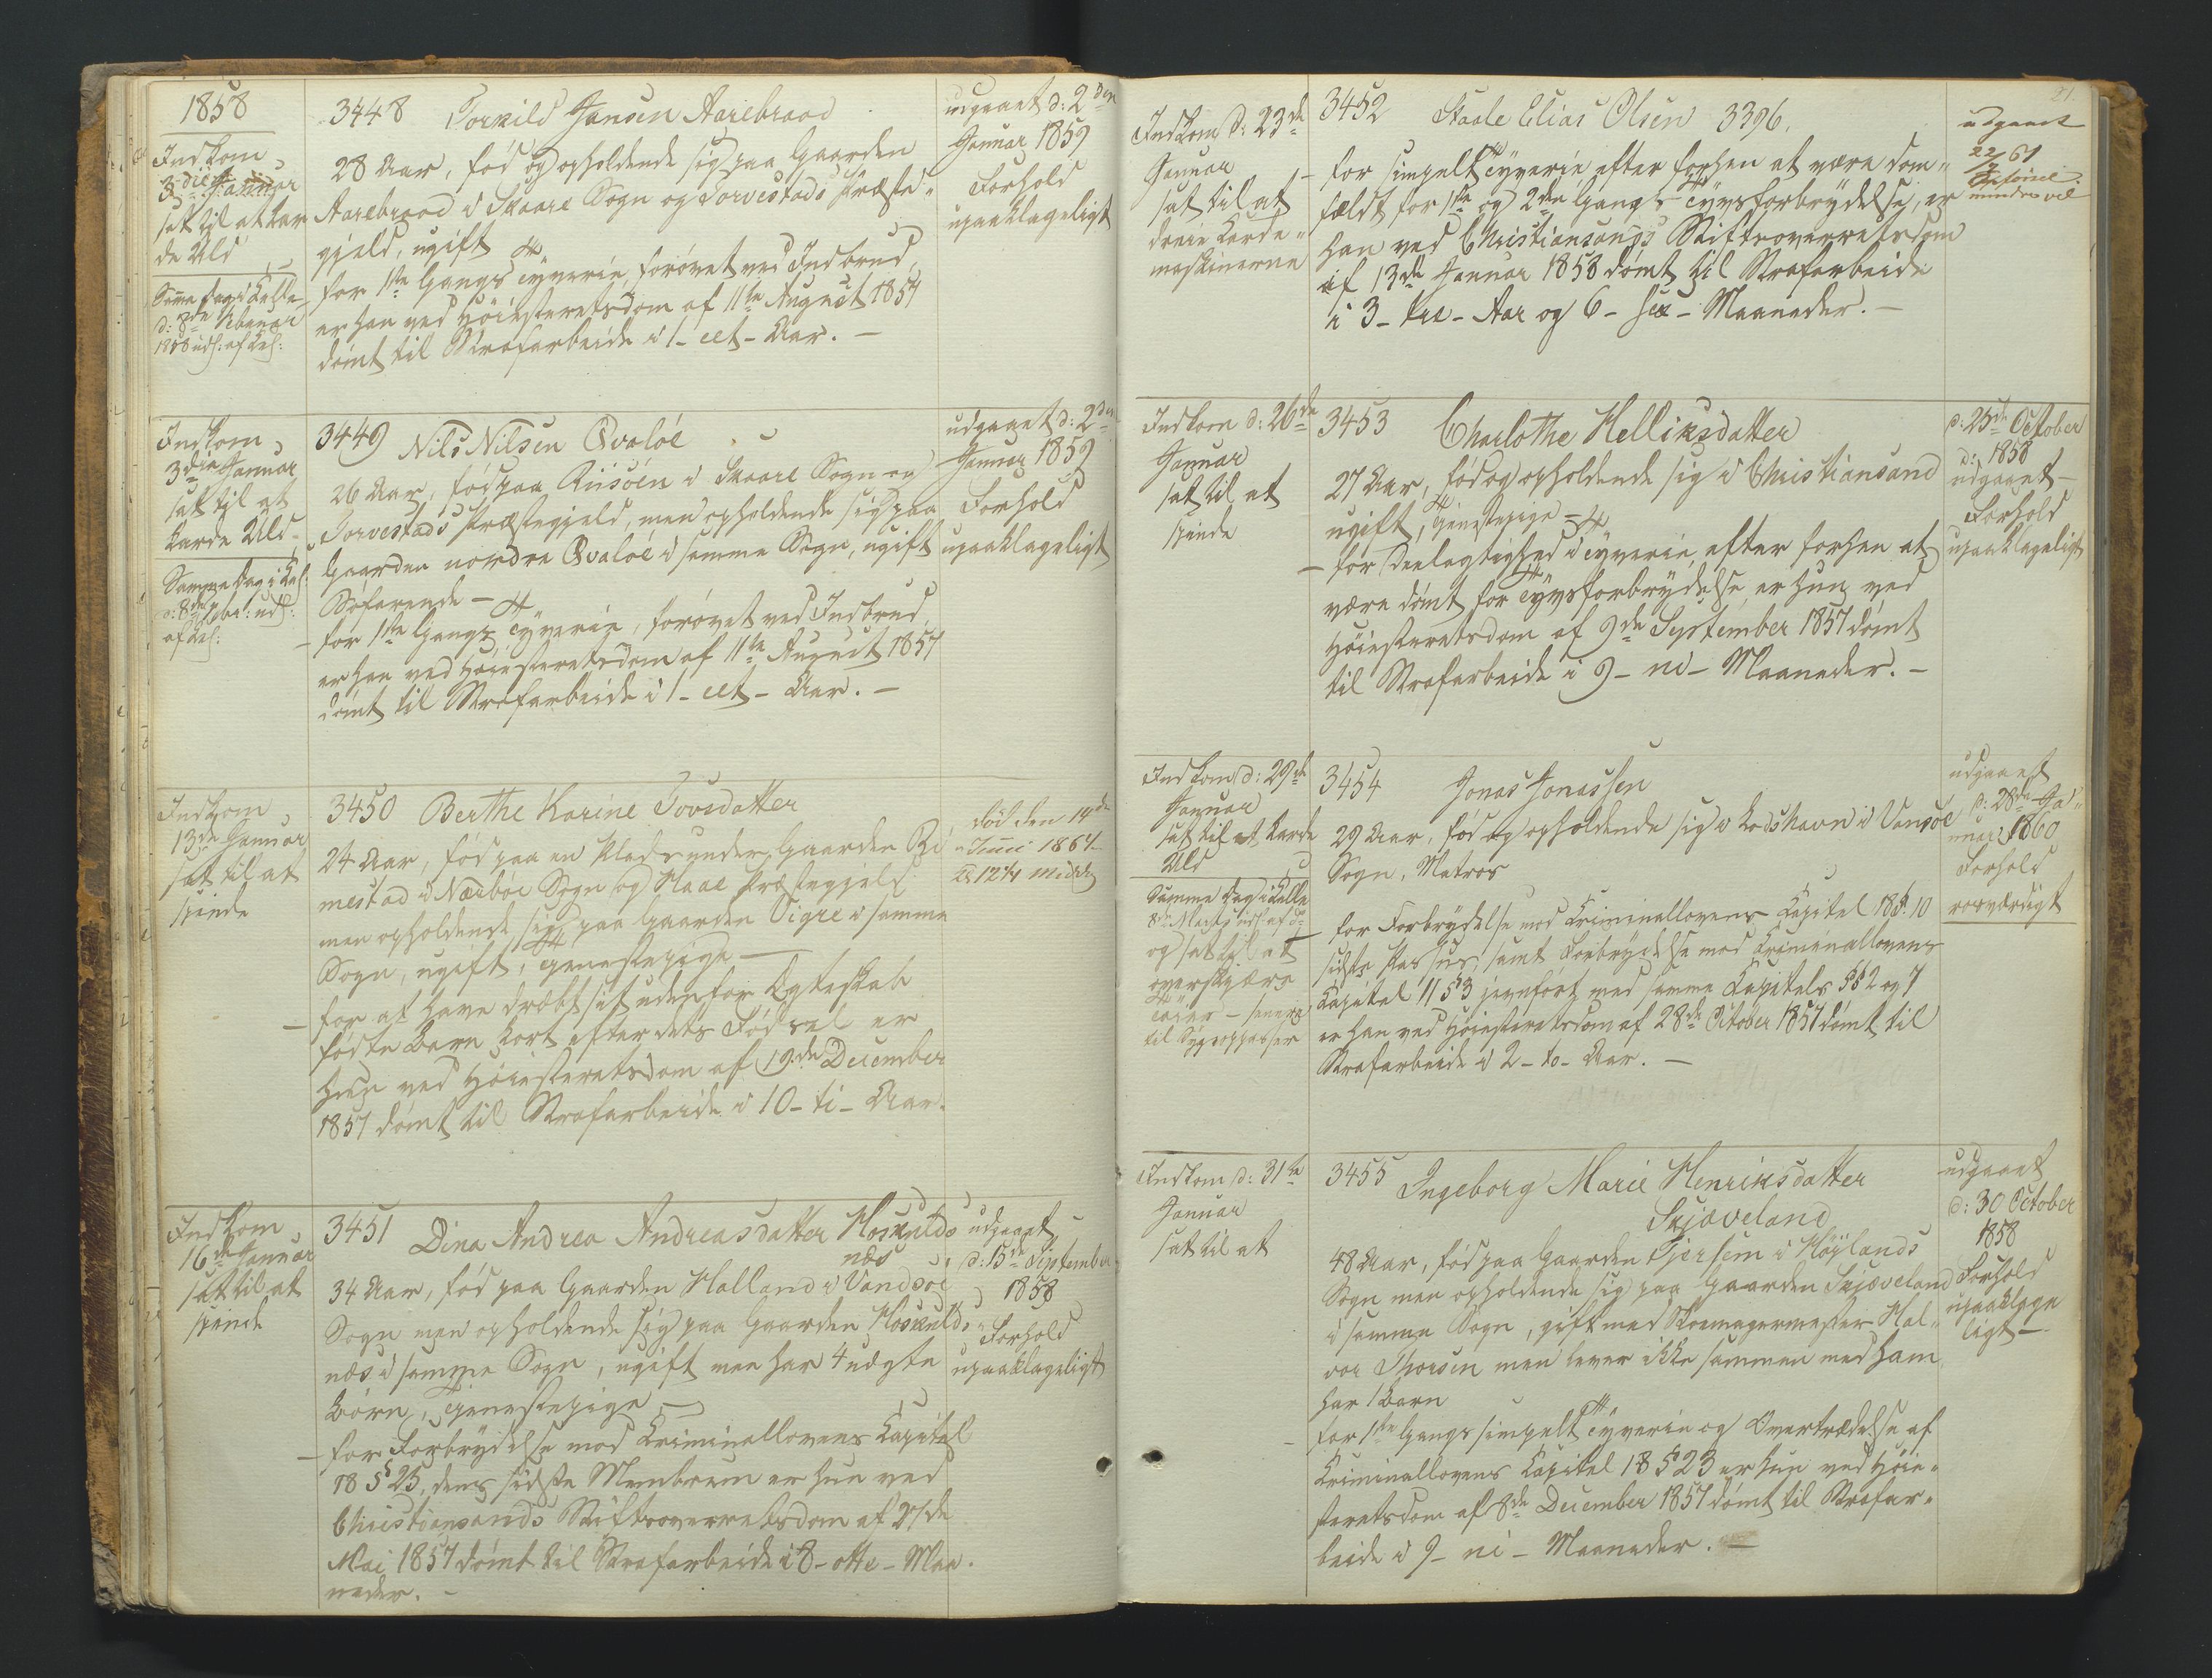 1858
Indkom
3die Januar
sat til at kar
de Uld
Samme Dag i Celle
d: 8de Februar
1858 uds: af Cel:
3448 Torkild Jansen Aarebraad
28 Aar, fød og opholdende sig paa Gaarden
Aarebraad i Skaare Sogn og Torvestads Præste-
gjeld, ugift
for 1ste Gangs Tyverie, forøvet ved Indbrud,
er han ved Høiesteretsdom af 11te August 1857
dømt til Strafarbeide i 1 - eet - Aar. -
udgaaet d: 2den
Januar 1859
Forhold
upaaklageligt
Indkom
3die Januar
sat til at
karde Uld
Samme Dag i Cel:
d: 8de Febr: uds:
af Cel:
3449 Nils Nilsen Qvaløe
26 Aar, fød paa Risøen i Skaare Sogn og
Torvestads Præstegjeld, men opholdende sig paa
Gaarden nordre Qvaløe i samme Sogn, ugift
Søfarende -
- for 1ste Gangs Tyverie, forøvet ved Indbrud,
er han ved Høiesteretsdom af 11te August 1857
dømt til Strafarbeide i 1 - eet - Aar. -
udgaaet d: 2den
Januar 1859
Forhold
upaaklageligt
Indkom
13de Januar
sat til at
spinde
3450 Berthe Karine Tovsdatter
24 Aar, fød paa en Plads under Gaarden Ri
mestad i Nærbøe Sogn og Haae Præstegjeld
men opholdende sig paa Gaarden Vigre i samme
Sogn, ugift, Tjenestepige -
- for at have dræbt sit udenfor Ægteskab
fødte Barn kort efter dets Fødsel er
hun ved Høiesteretsdom af 19de December
1857 dømt til Strafarbeide i 10 - ti - Aar.
død den 14de
Juni 1864
Kl 12¼ Middag
Indkom
16de Januar
sat til at
spinde
3451 Dina Andrea Andreasdatter Hoskulds
næs
34 Aar, fød paa Gaarden Halland i Vandsøe
Sogn men opholdende sig paa Gaarden Hoskulds-
næs i samme Sogn, ugift men har 4 uægte
Børn, Tjenestepige -
- for Forbrydelse mod Criminallovens Capitel
18 § 25, dens sidste Membrum er hun ved
Christiansands Stiftsoverretsdom af 27de
Mai 1857 dømt til Strafarbeide i 8 - otte - Maa-
neder. -
udgaaet
d: 15de September
1858
Forhold
upaaklageligt
21.
Indkom d: 23de
Januar
sat til at
dreie Karde-
maskinerne
3452 Staale Elias Olsen 3396.
- for simpelt Tyverie efter forhen at være dom-
fældt for 1ste og 2den Gangs Tyvsforbrydelse, er
han ved Christiansands Stiftsoverretsdom
af 13de Januar 1858 dømt til Strafarbeide
i 3 - tre - Aar og 6 - sex - Maaneder. -
udgaaet
22/7 61
mindre vel
Indkom d: 26de
Januar
sat til at
spinde
3453 Charlothe Helliksdatter
27 Aar, fød og opholdende sig i Christiansand
ugift, Tjenestepige -
- for Deelagtighed i Tyverie, efter forhen at
være dømt for Tyvsforbrydelse er hun ved
Høiesteretsdom af 9de September 1857 dømt
til Strafarbeide i 9 - ni - Maaneder. -
d: 25de October
1858
udgaaet -
Forhold
upaaklageligt
Indkom d: 29de
Januar
sat til at karde
Uld
Samme Dag i Celle
8de Marts uds: af do
og sat til at
overskjære
Tøier - senere
til Sygeopasser
3454 Jonas Jonassen
29 Aar, fød og opholdende sig i Loshavn i Vansøe
Sogn, Matros
- for Forbrydelse mod Criminallovens Capitel 18 § 10
sidste Passus, samt Forbrydelse mod Criminallovens
Capitel 11 § 3 jevnført med samme Capitels §§ 2 og 7
er han ved Høiesteretsdom af 28de October 1857 dømt til
Strafarbeide i 2 - to - Aar. -
udgaaet
d: 28de Ja-
nuar 1860
Forhold
rosværdigt
Indkom d: 31te
Januar
sat til at
3455 Ingeborg Marie Henriksdatter
Skjæveland
48 Aar, fød paa Gaarden Gjersem i Høylands
Sogn men opholdende sig paa Gaarden Skjæveland
i samme Sogn, gift med Skomagermester Hal-
vor Thorsen men lever ikke sammen med ham,
har 1 Barn
- for 1ste Gangs simpelt Tyverie og Overtrædelse af
Criminallovens Capitel 18 § 23 er hun ved Høie-
steretsdom af 8de December 1857 dømt til Strafar-
beide i 9 - ni - Maaneder. -
udgaaet
d: 30 October
1858
Forhold
upaaklage
ligt -